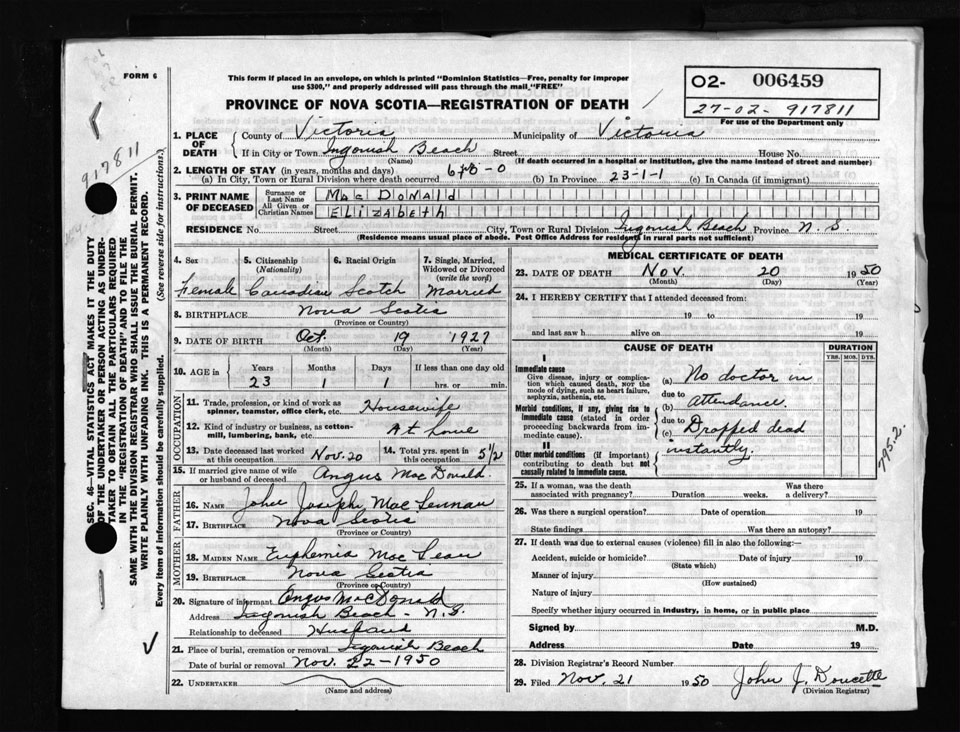 FORM 6
This form if placed in an envelope, on which is printed "Dominion Statistics—Free, penalty for improper
use $300," and properly addressed will pass through the mail "FREE"
PROVINCE OF NOVA SCOTIA—REGISTRATION OF DEATH
O2- 006459
27-02-917811
For use of the Department only
917811
SEC. 46—VITAL STATISTICS ACT MAKES IT THE DUTY
OF THE UNDERTAKER OR PERSON ACTING AS UNDER-
TAKER TO OBTAIN ALL THE PARTICULARS REQUIRED
IN THE "REGISTRATION OF DEATH" AND TO FILE THE
SAME WITH THE DIVISION REGISTRAR WHO SHALL ISSUE THE BURIAL PERMIT.
WRITE PLAINLY WITH UNFADING INK. THIS IS A PERMANENT RECORD.
Every item of information should be carefully supplied. (See reverse side for instructions.)
1. PLACE OF DEATH County of Victoria Municipality of Victoria
If in City or Town Ingonish Beach Street House No.
(Name) (If death occurred in a hospital or institution, give the name instead of street and number)
2. LENGTH OF STAY (in years, months and days)
(a) In City, Town or Rural Division where death occurred (b) In Province 23-1-1 (c) In Canada (if immigrant)
3. PRINT NAME OF DECEASED
Surname or Last Name MacDonald
All Given or Christian Names Elizabeth
RESIDENCE No. Street City, Town or Rural Division Ingonish Beach Province N.S.
(Residence means usual place of abode. Post Office Address for residents in rural parts not sufficient)
4. Sex Female
5. Citizenship (Nationality) Canadian
6. Racial Origin Scotch
7. Single, Married, Widowed or Divorced (write the word) Married
8. BIRTHPLACE Nova Scotia
(Province or Country)
9. DATE OF BIRTH Oct. 19 1927
(Month) (Day) (Year)
10. AGE in Years 23 Months 1 Days 1 If less than one day old hrs. or min.
OCCUPATION
11. Trade, profession, or kind of work as spinner, teamster, office clerk, etc. Housewife
12. Kind of industry or business, as cotton-mill, lumbering, bank, etc. At home
13. Date deceased last worked at this occupation Nov. 20
14. Total yrs. spent in this occupation 5 1/2
15. If married give name of wife or husband of deceased Angus MacDonald
FATHER
16. NAME John Joseph MacLennan
17. BIRTHPLACE Nova Scotia
(Province or Country)
MOTHER
18. MAIDEN NAME Euphemia MacLean
19. BIRTHPLACE Nova Scotia
(Province or Country)
20. Signature of informant Angus MacDonald
Address Ingonish Beach - N.S.
Relationship to deceased Husband
21. Place of burial, cremation or removal Ingonish Beach
Date of burial or removal Nov. 22-1950
22. UNDERTAKER
(Name and address)
MEDICAL CERTIFICATE OF DEATH
23. DATE OF DEATH Nov. 20 1950
(Month) (Day) (Year)
24. I HEREBY CERTIFY that I attended deceased from:
19 to 19
and last saw h alive on 19
CAUSE OF DEATH DURATION
YRS. MOS. DYS.
I
Immediate cause
Give disease, injury or complication which caused death, NOT the mode of dying, such as heart failure, asphyxia, asthenia, etc.
(a) No doctor in
due to
Morbid conditions, if any, giving rise to immediate cause (stated in order proceeding backwards from immediate cause).
(b) attendance.
due to
(c) Dropped dead
instantly.
II
Other morbid conditions (if important) contributing to death but not causally related to immediate cause.
795.2.
25. If a woman, was the death associated with pregnancy? Duration weeks. Was there a delivery?
26. Was there a surgical operation? Date of operation 19
State findings Was there an autopsy?
27. If death was due to external causes (violence) fill in also the following:—
Accident, suicide or homicide? Date of injury 19
(State which)
Manner of injury
(How sustained)
Nature of injury
Specify whether injury occurred in industry, in home, or in public place
Signed by M.D.
Address Date 19
28. Division Registrar's Record Number
29. Filed Nov. 21 1950 John J. Doucette
(Division Registrar)